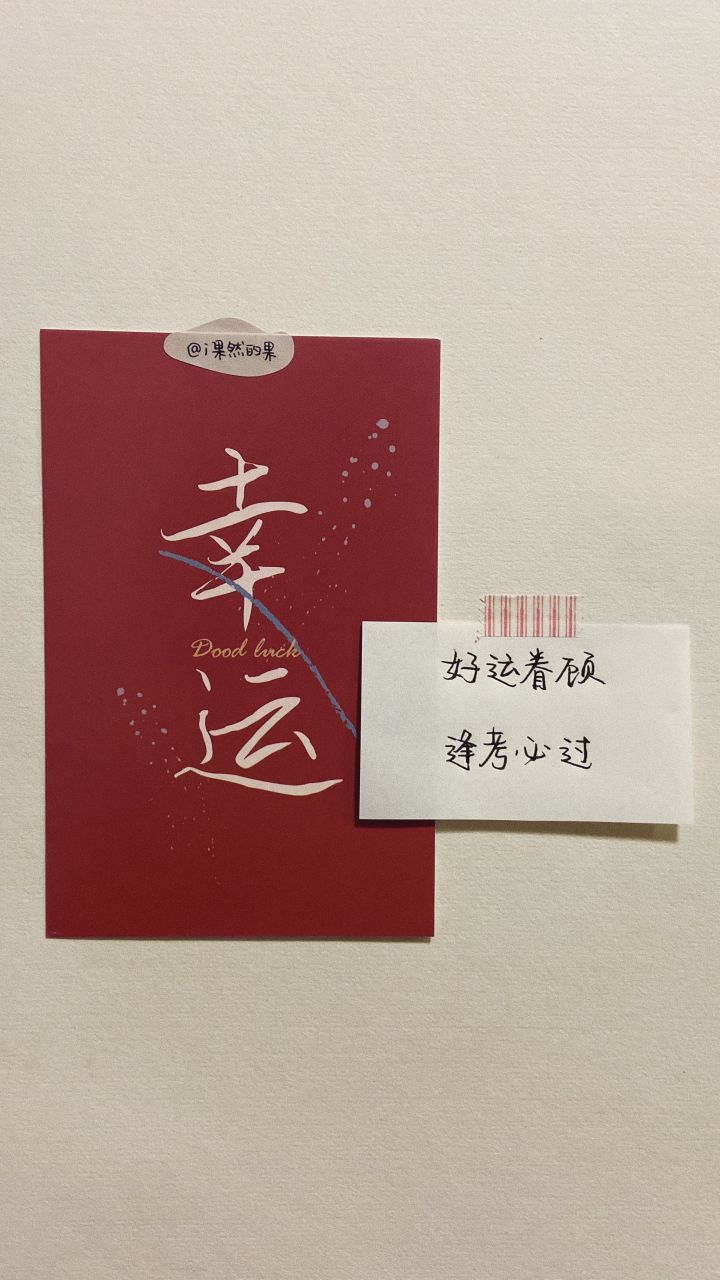 @i果然的果
幸
Dood luck
运
好运眷顾
逢考必过